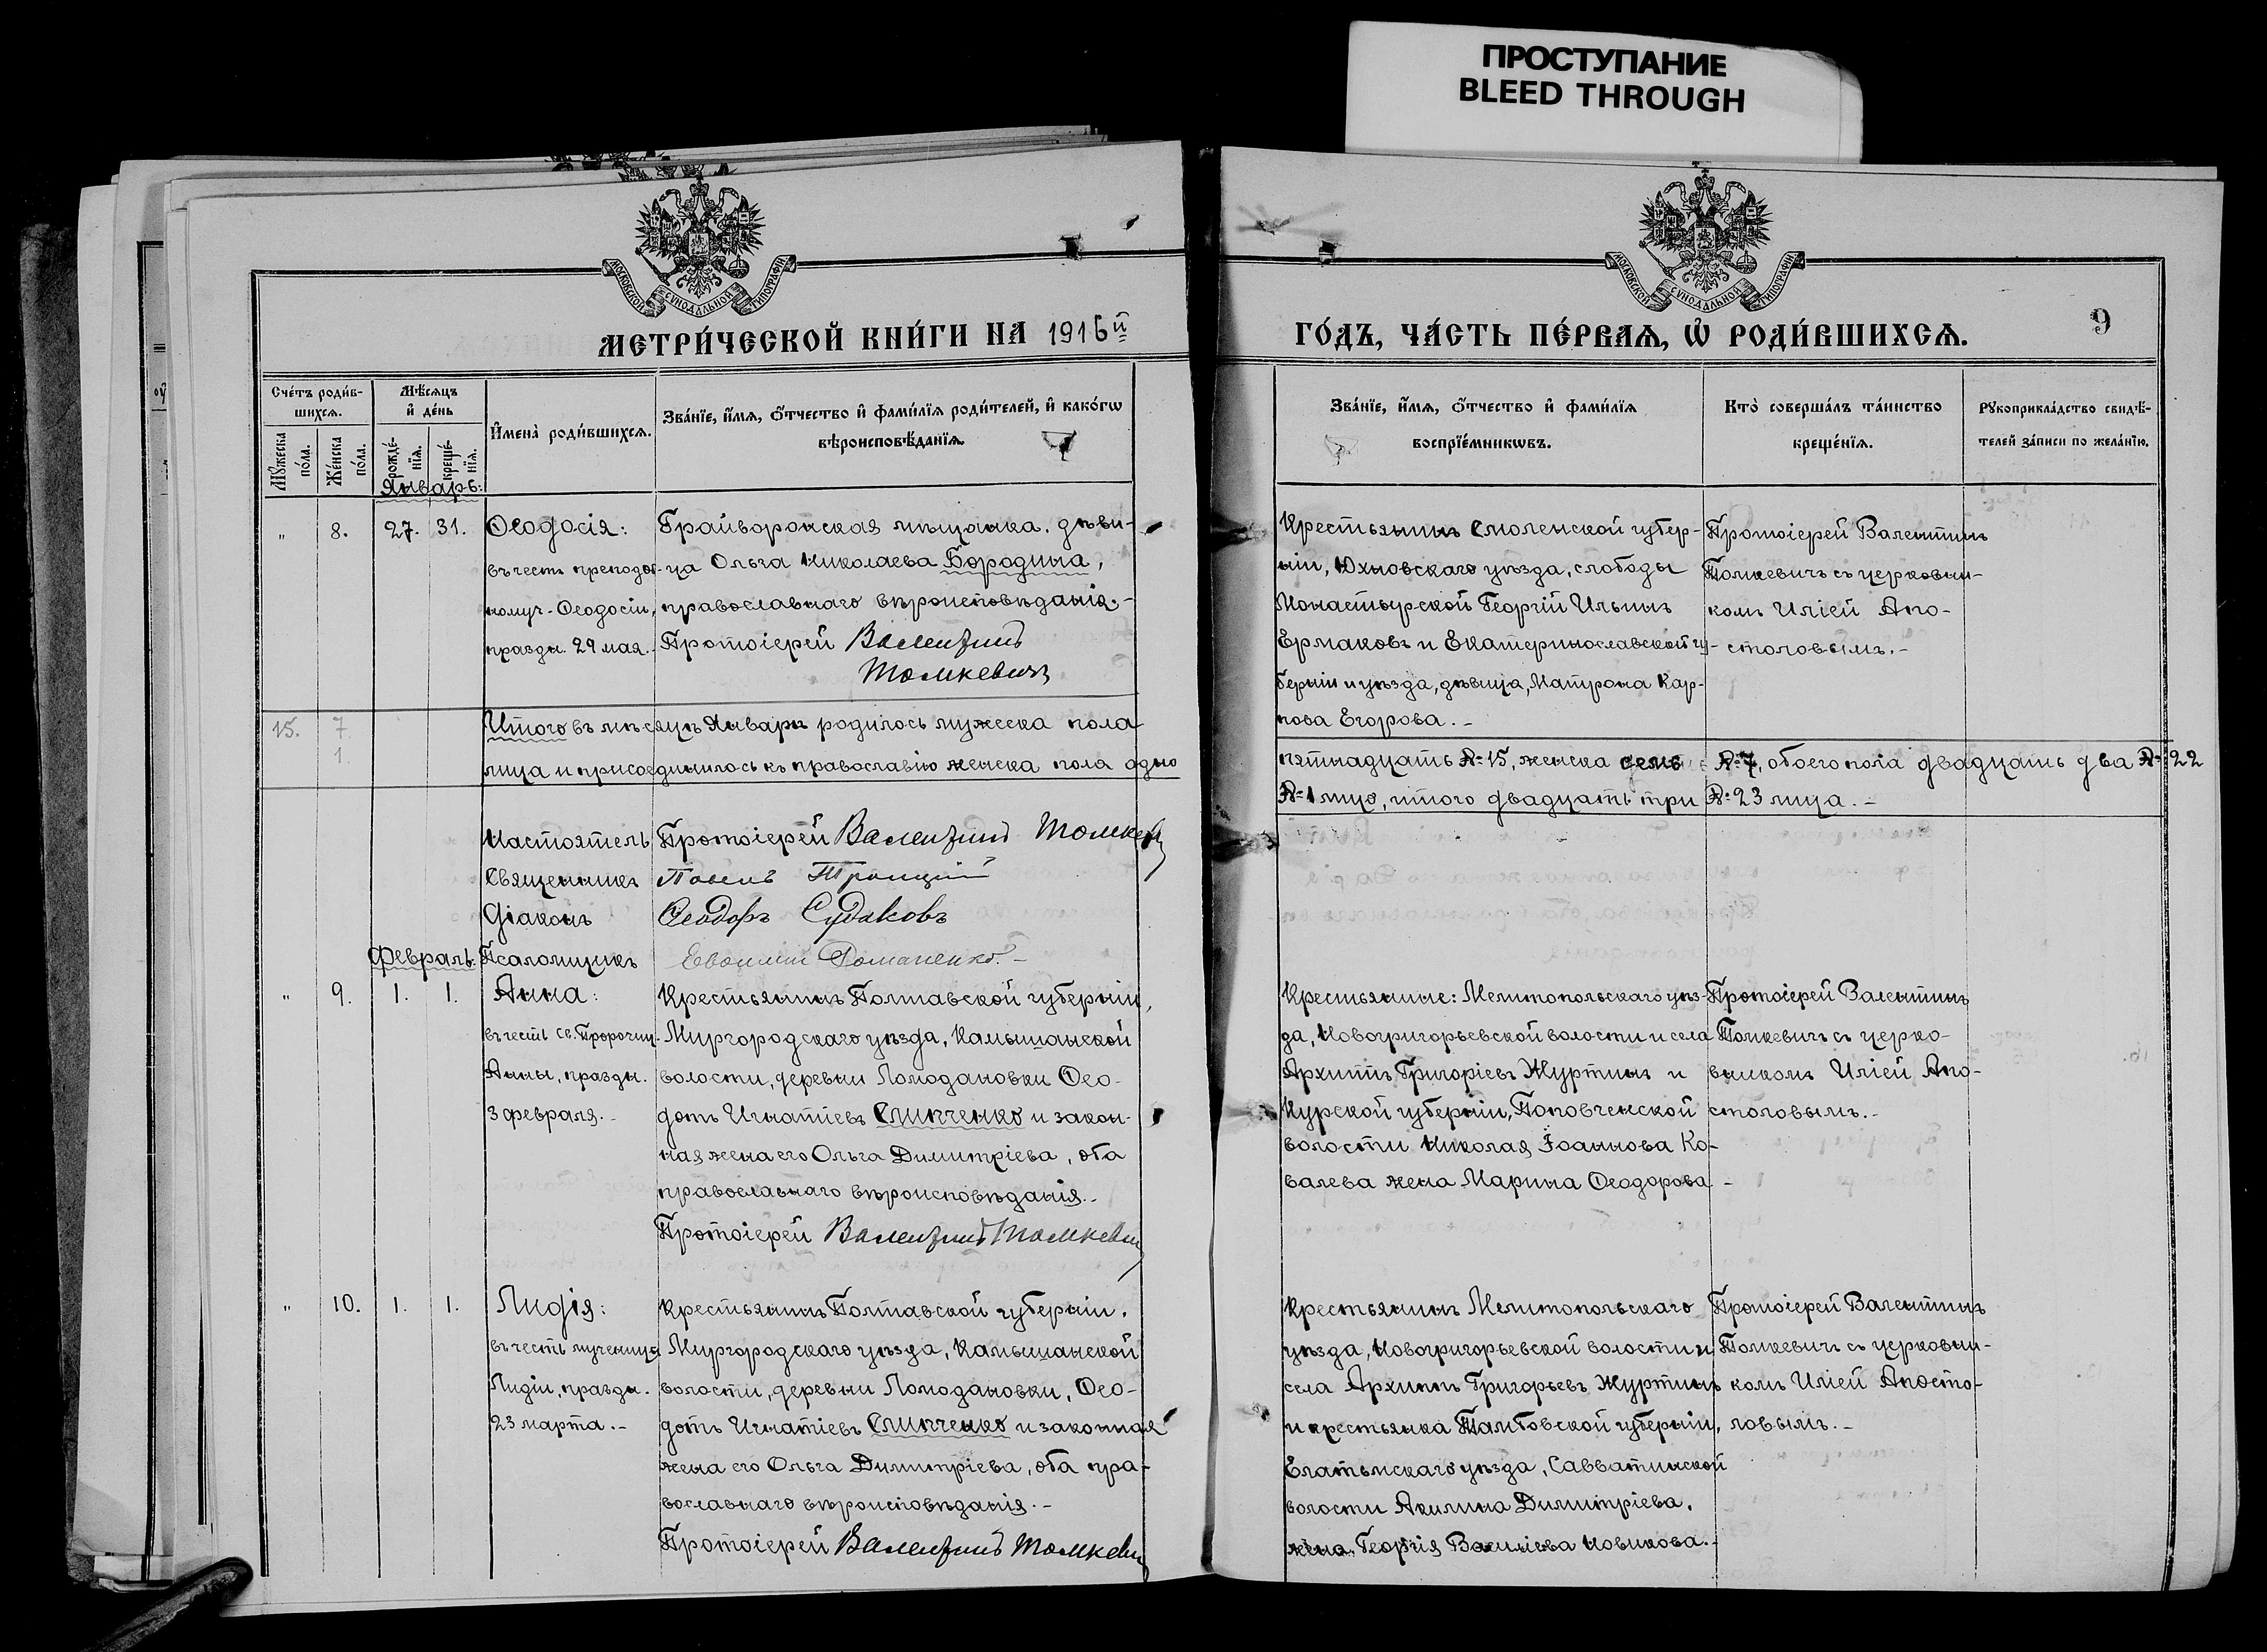 ПРОСТУПАНИЕ
BLEED THROUGH
МОСКОВСКОЙ СѴНОДАЛЬНОЙ ТИПОГРАФІИ
МОСКОВСКОЙ СѴНОДАЛЬНОЙ ТИПОГРАФІИ
МЕТРИ́ЧЕСКОЙ КНИ́ГИ НА 1916й
ГО́ДЪ, ЧА́СТЬ ПЕ́РВАѦ, Ѡ҆ РОДИ́ВШИХСѦ.
9
Сче́тъ роди́в-
шихсѧ.
Мꙋ́жеска по́ла.
Же́нска по́ла.
Мѣ́сѧцъ
и҆ де́нь
рожде́-
нїѧ.
креще́-
нїѧ.
И҆мена̀ роди́вшихсѧ.
Зва́нїе, и҆́мѧ, ѻ҆́тчество и҆ фами́лїѧ роди́телей, и҆ како́гѡ
вѣроисповѣ́данїѧ.
Зва́нїе, и҆́мѧ, ѻ҆́тчество и҆ фами́лїѧ
воспрїе́мникѡвъ.
Кто̀ соверша́лъ та́инство
креще́нїѧ.
Рꙋкоприкла́дство свидѣ́-
телей за́писи по жела́нїю.
Январь:
" 8. 27. 31.
Ѳеодосія:
въ честь преподоб-
номуч. Ѳеодосіи,
праздн. 29 мая.
Грайворонская мѣщанка, дѣви-
ца Ольга Николаева Бородина,
православнаго вѣроисповѣданія.-
Протоіерей Валентинъ
Томкевичъ
Крестьянинъ Смоленской губер-
ніи, Юхновскаго уѣзда, слободы
Монастырской Георгій Ильинъ
Ермаковъ и Екатеринославской гу-
берніи и уѣзда, дѣвица, Матрона Кар-
пова Егорова.-
Протоіерей Валентинъ
Томкевичъ съ церковни-
комъ Иліей Апо-
столовымъ.-
15. 7
1.
Итого въ мѣсяцѣ Январѣ родилось мужеска пола
пятнадцать №15, женска семь №7, обоего пола двадцать два №22
лица и присоединилось къ православію женска пола одно
№1 лицо, итого двадцать три №23 лица.-
Настоятель Протоіерей Валентинъ Томкевичъ
Священникъ Павелъ Троицкій
Діаконъ Ѳеодоръ Судаковъ
Псаломщикъ Евѳимій Романенко.-
Февраль.
" 9. 1. 1.
Анна:
въ честь Св. Пророчиц.
Анны, праздн.
3 февраля.-
Крестьянинъ Полтавской губерніи,
Миргородскаго уѣзда, Камышанской
волости, деревни Ломодановки Ѳео-
дотъ Игнатіевъ Слипченко и закон-
ная жена его Ольга Димитріева, оба
православнаго вѣроисповѣданія.-
Протоіерей Валентинъ Томкевичъ
Крестьянине: Мелитопольскаго уѣз-
да, Новогригорьевской волости и села
Архиппъ Григоріевъ Журтинъ и
Курской губерніи, Поповченской
волости Николая Іоаннова Ко-
валева жена Марина Ѳеодорова.-
Протоіерей Валентинъ
Томкевичъ съ церко-
вникомъ Иліей Апо-
столовымъ.-
" 10. 1. 1.
Лидія:
въ честь мученицы
Лидіи, праздн.
23 марта.-
Крестьянинъ Полтавской губерніи,
Миргородскаго уѣзда, Камышанской
волости, деревни Ломодановки, Ѳео-
дотъ Игнатіевъ Слипченко и законная
жена его Ольга Димитріева, оба пра-
вославнаго вѣроисповѣданія.-
Протоіерей Валентинъ Томкевичъ
Крестьянинъ Мелитопольскаго
уѣзда, Новогригорьевской волости и
села Архиппъ Григорьевъ Журтинъ
и крестьянка Тамбовской губерніи,
Елатьмскаго уѣзда, Савватинской
волости Акилина Димитріева,
жена Георгія Василіева Новикова.-
Протоіерей Валентинъ
Томкевичъ съ церковни-
комъ Иліей Апосто-
ловымъ.-